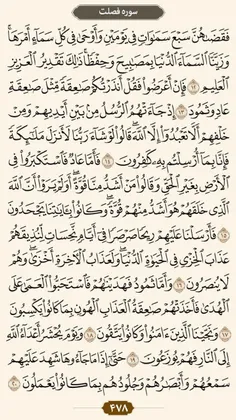 سوره فصلت
فَقَضَىٰهُنَّ سَبْعَ سَمَٰوَاتٍ فِي يَوْمَيْنِ وَأَوْحَىٰ فِي كُلِّ سَمَآءٍ أَمْرَهَا
وَزَيَّنَّا ٱلسَّمَآءَ ٱلدُّنْيَا بِمَصَٰبِيحَ وَحِفْظًا ذَٰلِكَ تَقْدِيرُ ٱلْعَزِيزِ
ٱلْعَلِيمِ ١٢ فَإِنْ أَعْرَضُوا۟ فَقُلْ أَنذَرْتُكُمْ صَٰعِقَةً مِّثْلَ صَٰعِقَةِ
عَادٍ وَثَمُودَ ١٣ إِذْ جَآءَتْهُمُ ٱلرُّسُلُ مِنۢ بَيْنِ أَيْدِيهِمْ وَمِنْ
خَلْفِهِمْ أَلَّا تَعْبُدُوٓا۟ إِلَّا ٱللَّهَ قَالُوا۟ لَوْ شَآءَ رَبُّنَا لَأَنزَلَ مَلَٰٓئِكَةً
فَإِنَّا بِمَآ أُرْسِلْتُم بِهِۦ كَٰفِرُونَ ١٤ فَأَمَّا عَادٌ فَٱسْتَكْبَرُوا۟ فِي
ٱلْأَرْضِ بِغَيْرِ ٱلْحَقِّ وَقَالُوا۟ مَنْ أَشَدُّ مِنَّا قُوَّةً أَوَلَمْ يَرَوْا۟ أَنَّ ٱللَّهَ
ٱلَّذِي خَلَقَهُمْ هُوَ أَشَدُّ مِنْهُمْ قُوَّةً وَكَانُوا۟ بِـَٔايَٰتِنَا يَجْحَدُونَ
١٥ فَأَرْسَلْنَا عَلَيْهِمْ رِيحًا صَرْصَرًا فِيٓ أَيَّامٍ نَّحِسَاتٍ لِّنُذِيقَهُمْ
عَذَابَ ٱلْخِزْيِ فِي ٱلْحَيَوٰةِ ٱلدُّنْيَا وَلَعَذَابُ ٱلْآخِرَةِ أَخْزَىٰ وَهُمْ
لَا يُنصَرُونَ ١٦ وَأَمَّا ثَمُودُ فَهَدَيْنَٰهُمْ فَٱسْتَحَبُّوا۟ ٱلْعَمَىٰ عَلَى
ٱلْهُدَىٰ فَأَخَذَتْهُمْ صَٰعِقَةُ ٱلْعَذَابِ ٱلْهُونِ بِمَا كَانُوا۟ يَكْسِبُونَ
١٧ وَنَجَّيْنَا ٱلَّذِينَ ءَامَنُوا۟ وَكَانُوا۟ يَتَّقُونَ ١٨ وَيَوْمَ يُحْشَرُ أَعْدَآءُ ٱللَّهِ
إِلَى ٱلنَّارِ فَهُمْ يُوزَعُونَ ١٩ حَتَّىٰٓ إِذَا مَا جَآءُوهَا شَهِدَ عَلَيْهِمْ
سَمْعُهُمْ وَأَبْصَٰرُهُمْ وَجُلُودُهُم بِمَا كَانُوا۟ يَعْمَلُونَ ٢٠
٤٧٨